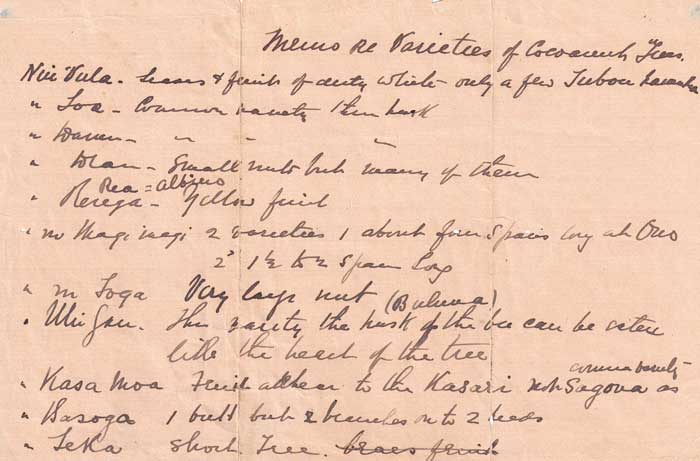 Memo re Varieties of Cocoanut Trees.
Niu Vula - leaves & fruit of dirty white only a few Tubou
" Loa - Common variety thin husk
" Damu - " " "
" Drau - Small nuts but many of them
Rea = albino
" Rerega - Yellow fruit
" ni Magimagi 2 varieties 1 about four spans long at Ono
2° 1½ to 2 span long
" ni Toga Very large nut (Buluwa)
" Uhi Gau. This variety the husk of the can be eaten
like the heart of the tree
common variety
" Kasa Moa Fruit adhear to the Kasari not Sogova as
" Basoga 1 butt but 2 branches on to 2 heads
" Leka Short Tree. bears fruit